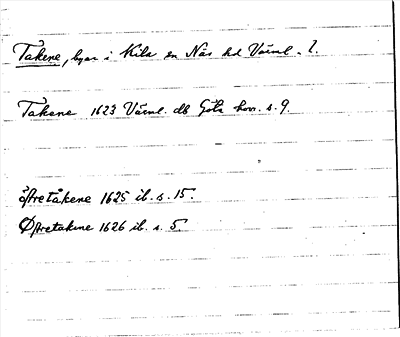 Takene, byar i Kila sn Näs hd Värml. l.
Takene 1623 Värml. db Göta hovr. s. 9.
Øfretåkene 1625 ib. s. 15.
Øfretakene 1626 ib. s. 5.